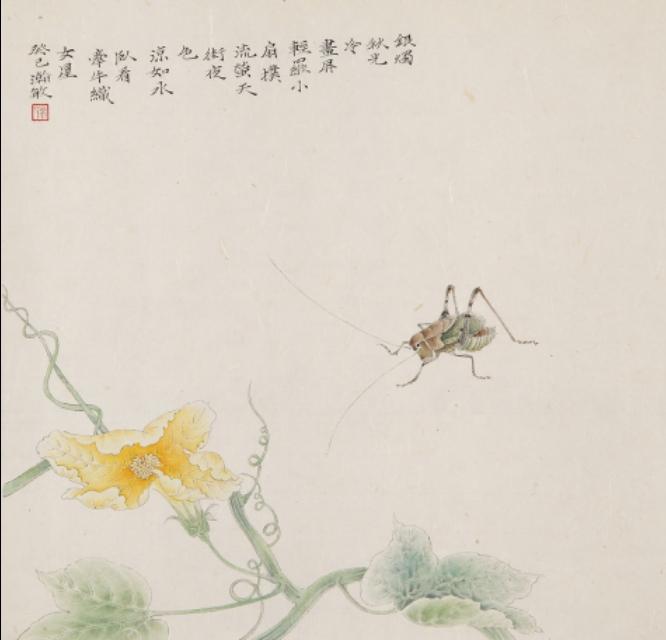 銀燭
秋光
冷
畫屏
輕羅小
扇撲
流螢天
街夜
色
涼如水
臥看
牽牛織
女星
癸巳瀚敏